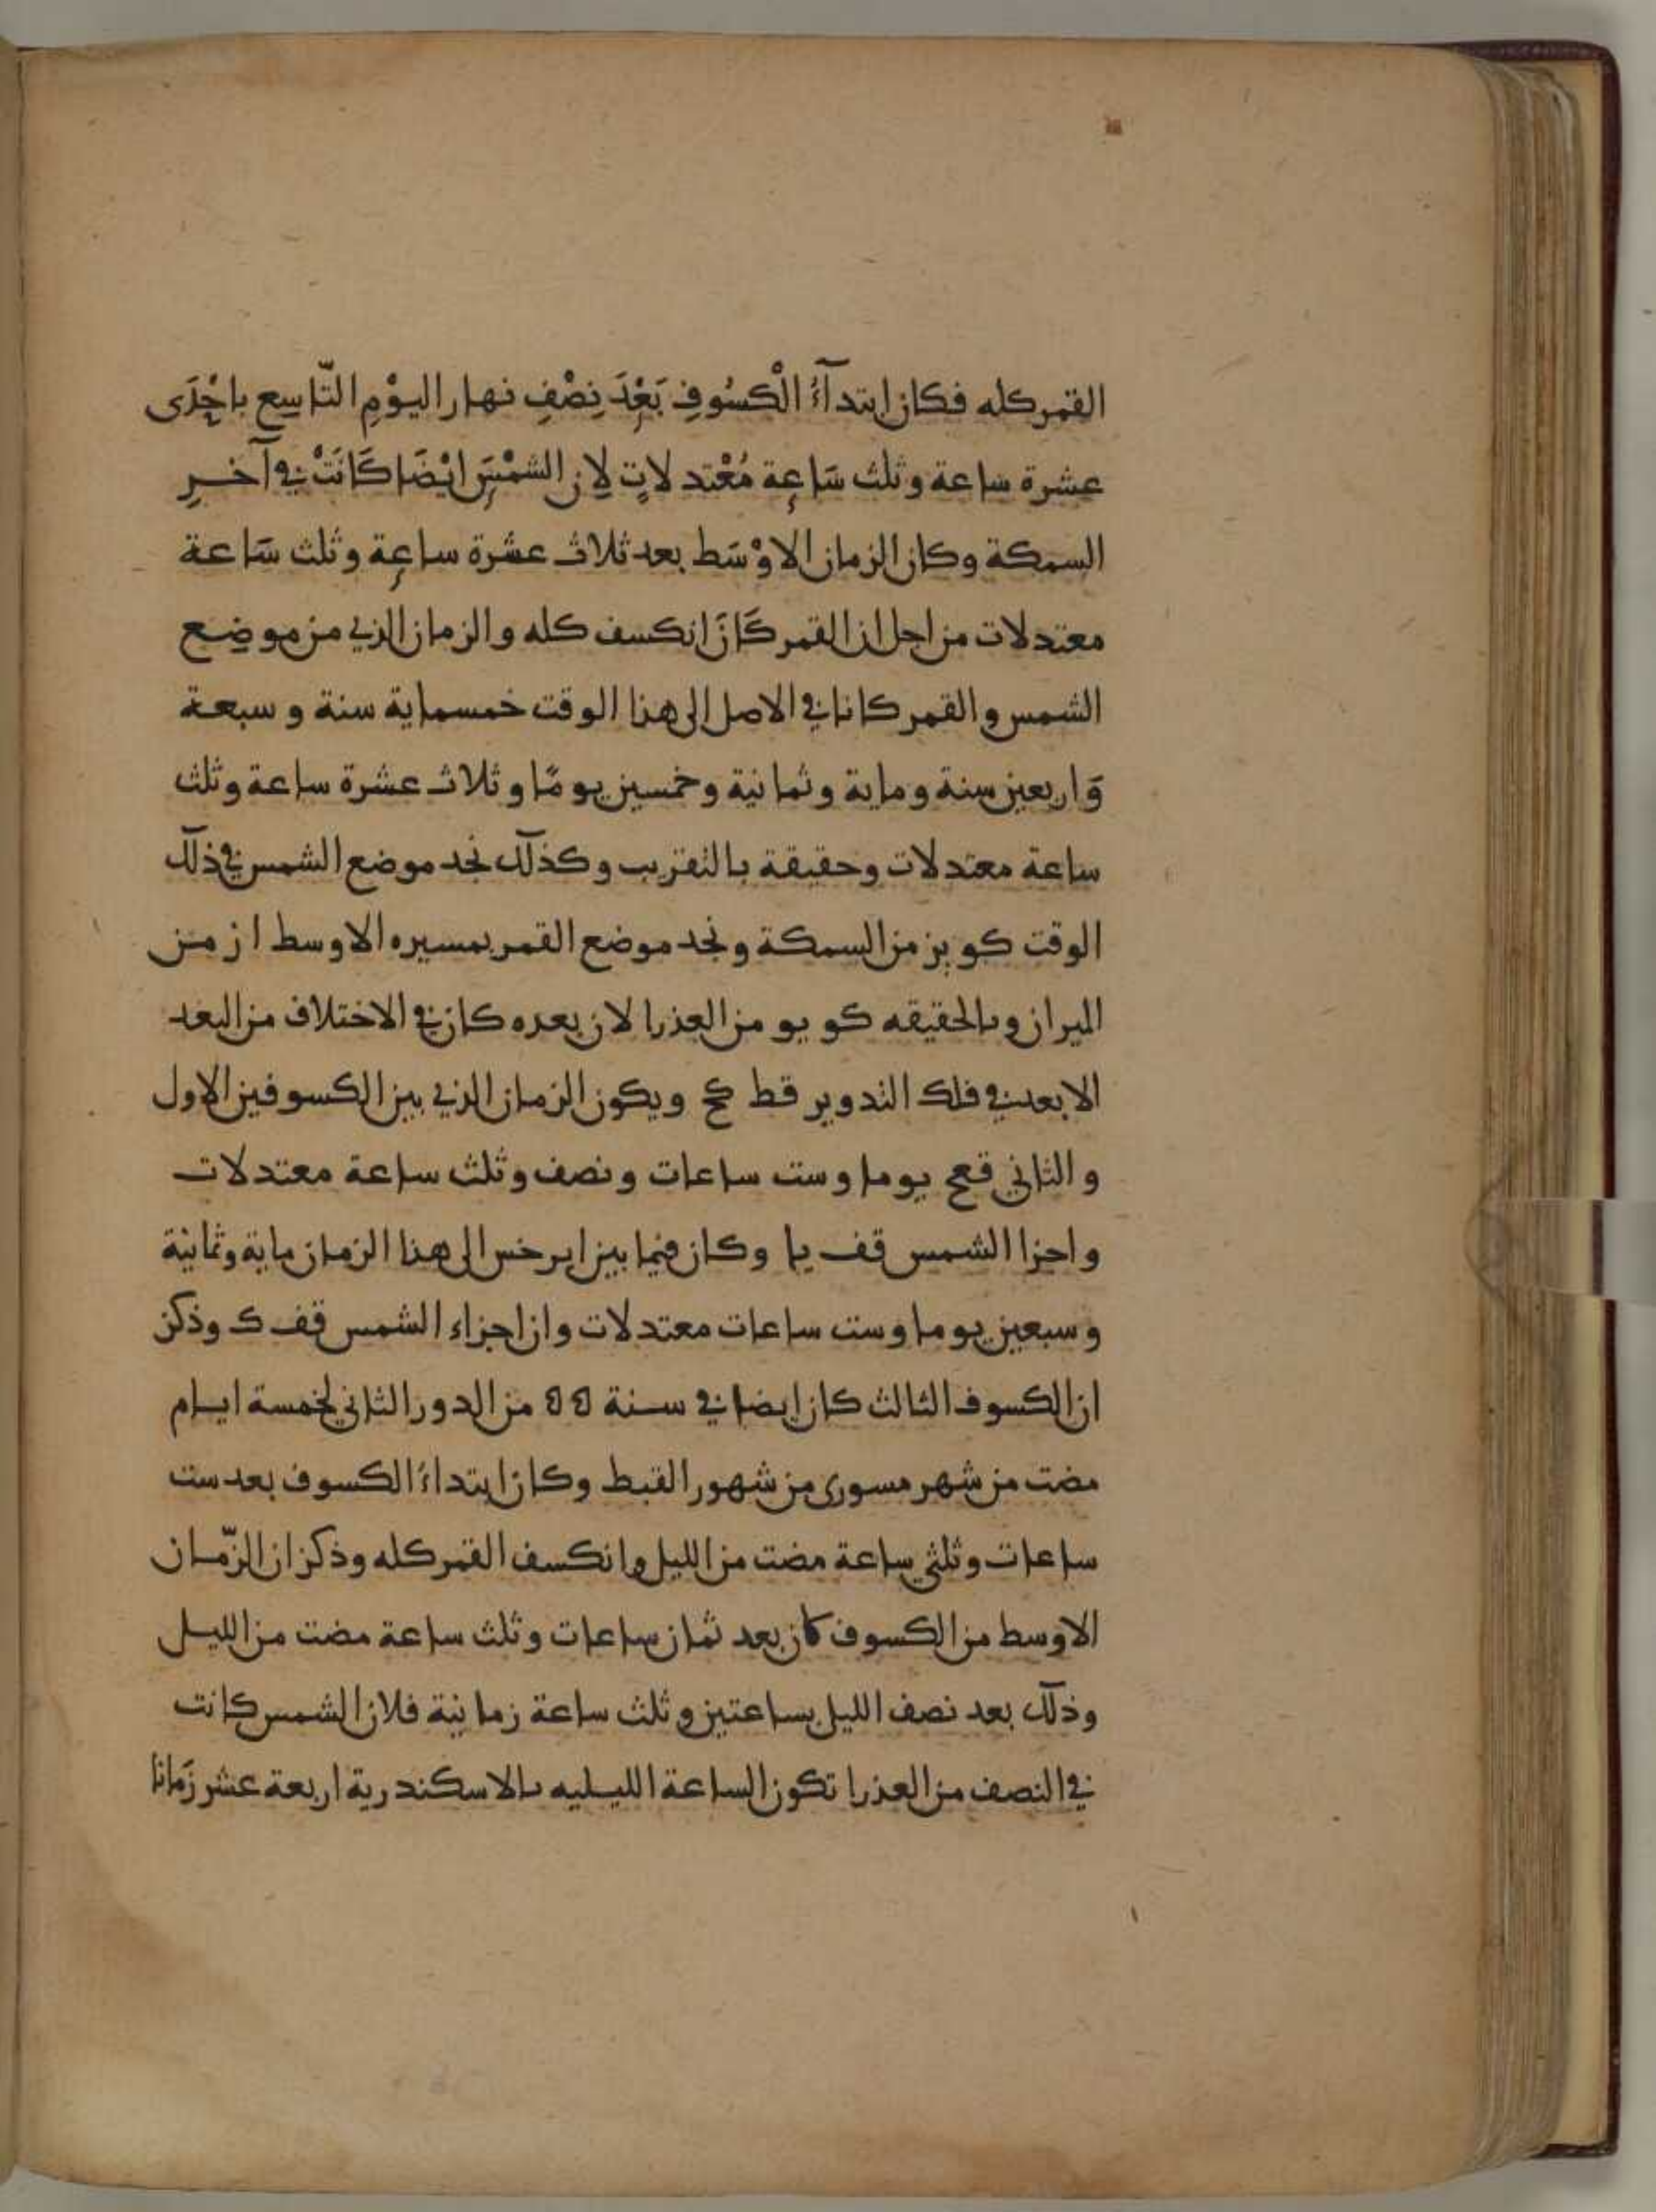 القمر كله فكان ابتدآءُ الْكسُوفِ بَعْدَ نِصْفِ نهار اليوْمِ التّاسِع باحْدَى
عشرة ساعة وثلث سَاعة مُعْتدلاتٍ لِان الشمْسَ ايْضَا كَانَتْ في آخرِ
السمكة وكان الزمان الاوْسَط بعد ثلاث عشرة ساعة وثلث سَاعة
معتدلات من اجل ان القمر كَانَ انكسف كله والزمان الذي من موضِع
الشمس والقمر كانا في الاصل الى هذا الوقت خمسماية سنة وسبعة
وَاربعين سنة وماية وثمانية وخمسين يومًا وثلاث عشرة ساعة وثلث
ساعة معتدلات وحقيقة بالتقريب وكذلك نجد موضع الشمس في ذلك
الوقت كو يز من السمكة ونجد موضع القمر بمسيره الاوسط ا ز من
الميزان وبالحقيقه كو يو من العذرا لان بعده كان في الاختلاف من البعد
الابعد في فلك التدوير قط كح ويكون الزمان الذي بين الكسوفين الاول
والثاني قعح يوما وست ساعات ونصف وثلث ساعة معتدلات
واجزا الشمس قف يا وكان فيما بين ابرخس الى هذا الزمان ماية وثمانية
وسبعين يوما وست ساعات معتدلات وان اجزاء الشمس قف ك وذكر
ان الكسوف الثالث كان ايضا في سنة ٥٥ من الدور الثاني لخمسة ايام
مضت من شهر مسورى من شهور القبط وكان ابتداءُ الكسوف بعد ست
ساعات وثلثي ساعة مضت من الليل وانكسف القمر كله وذكر ان الزّمان
الاوسط من الكسوف كان بعد ثمان ساعات وثلث ساعة مضت من الليل
وذلك بعد نصف الليل بساعتين وثلث ساعة زمانية فلان الشمس كانت
في النصف من العذرا تكون الساعة الليليه بالاسكندرية اربعة عشر زَمانا